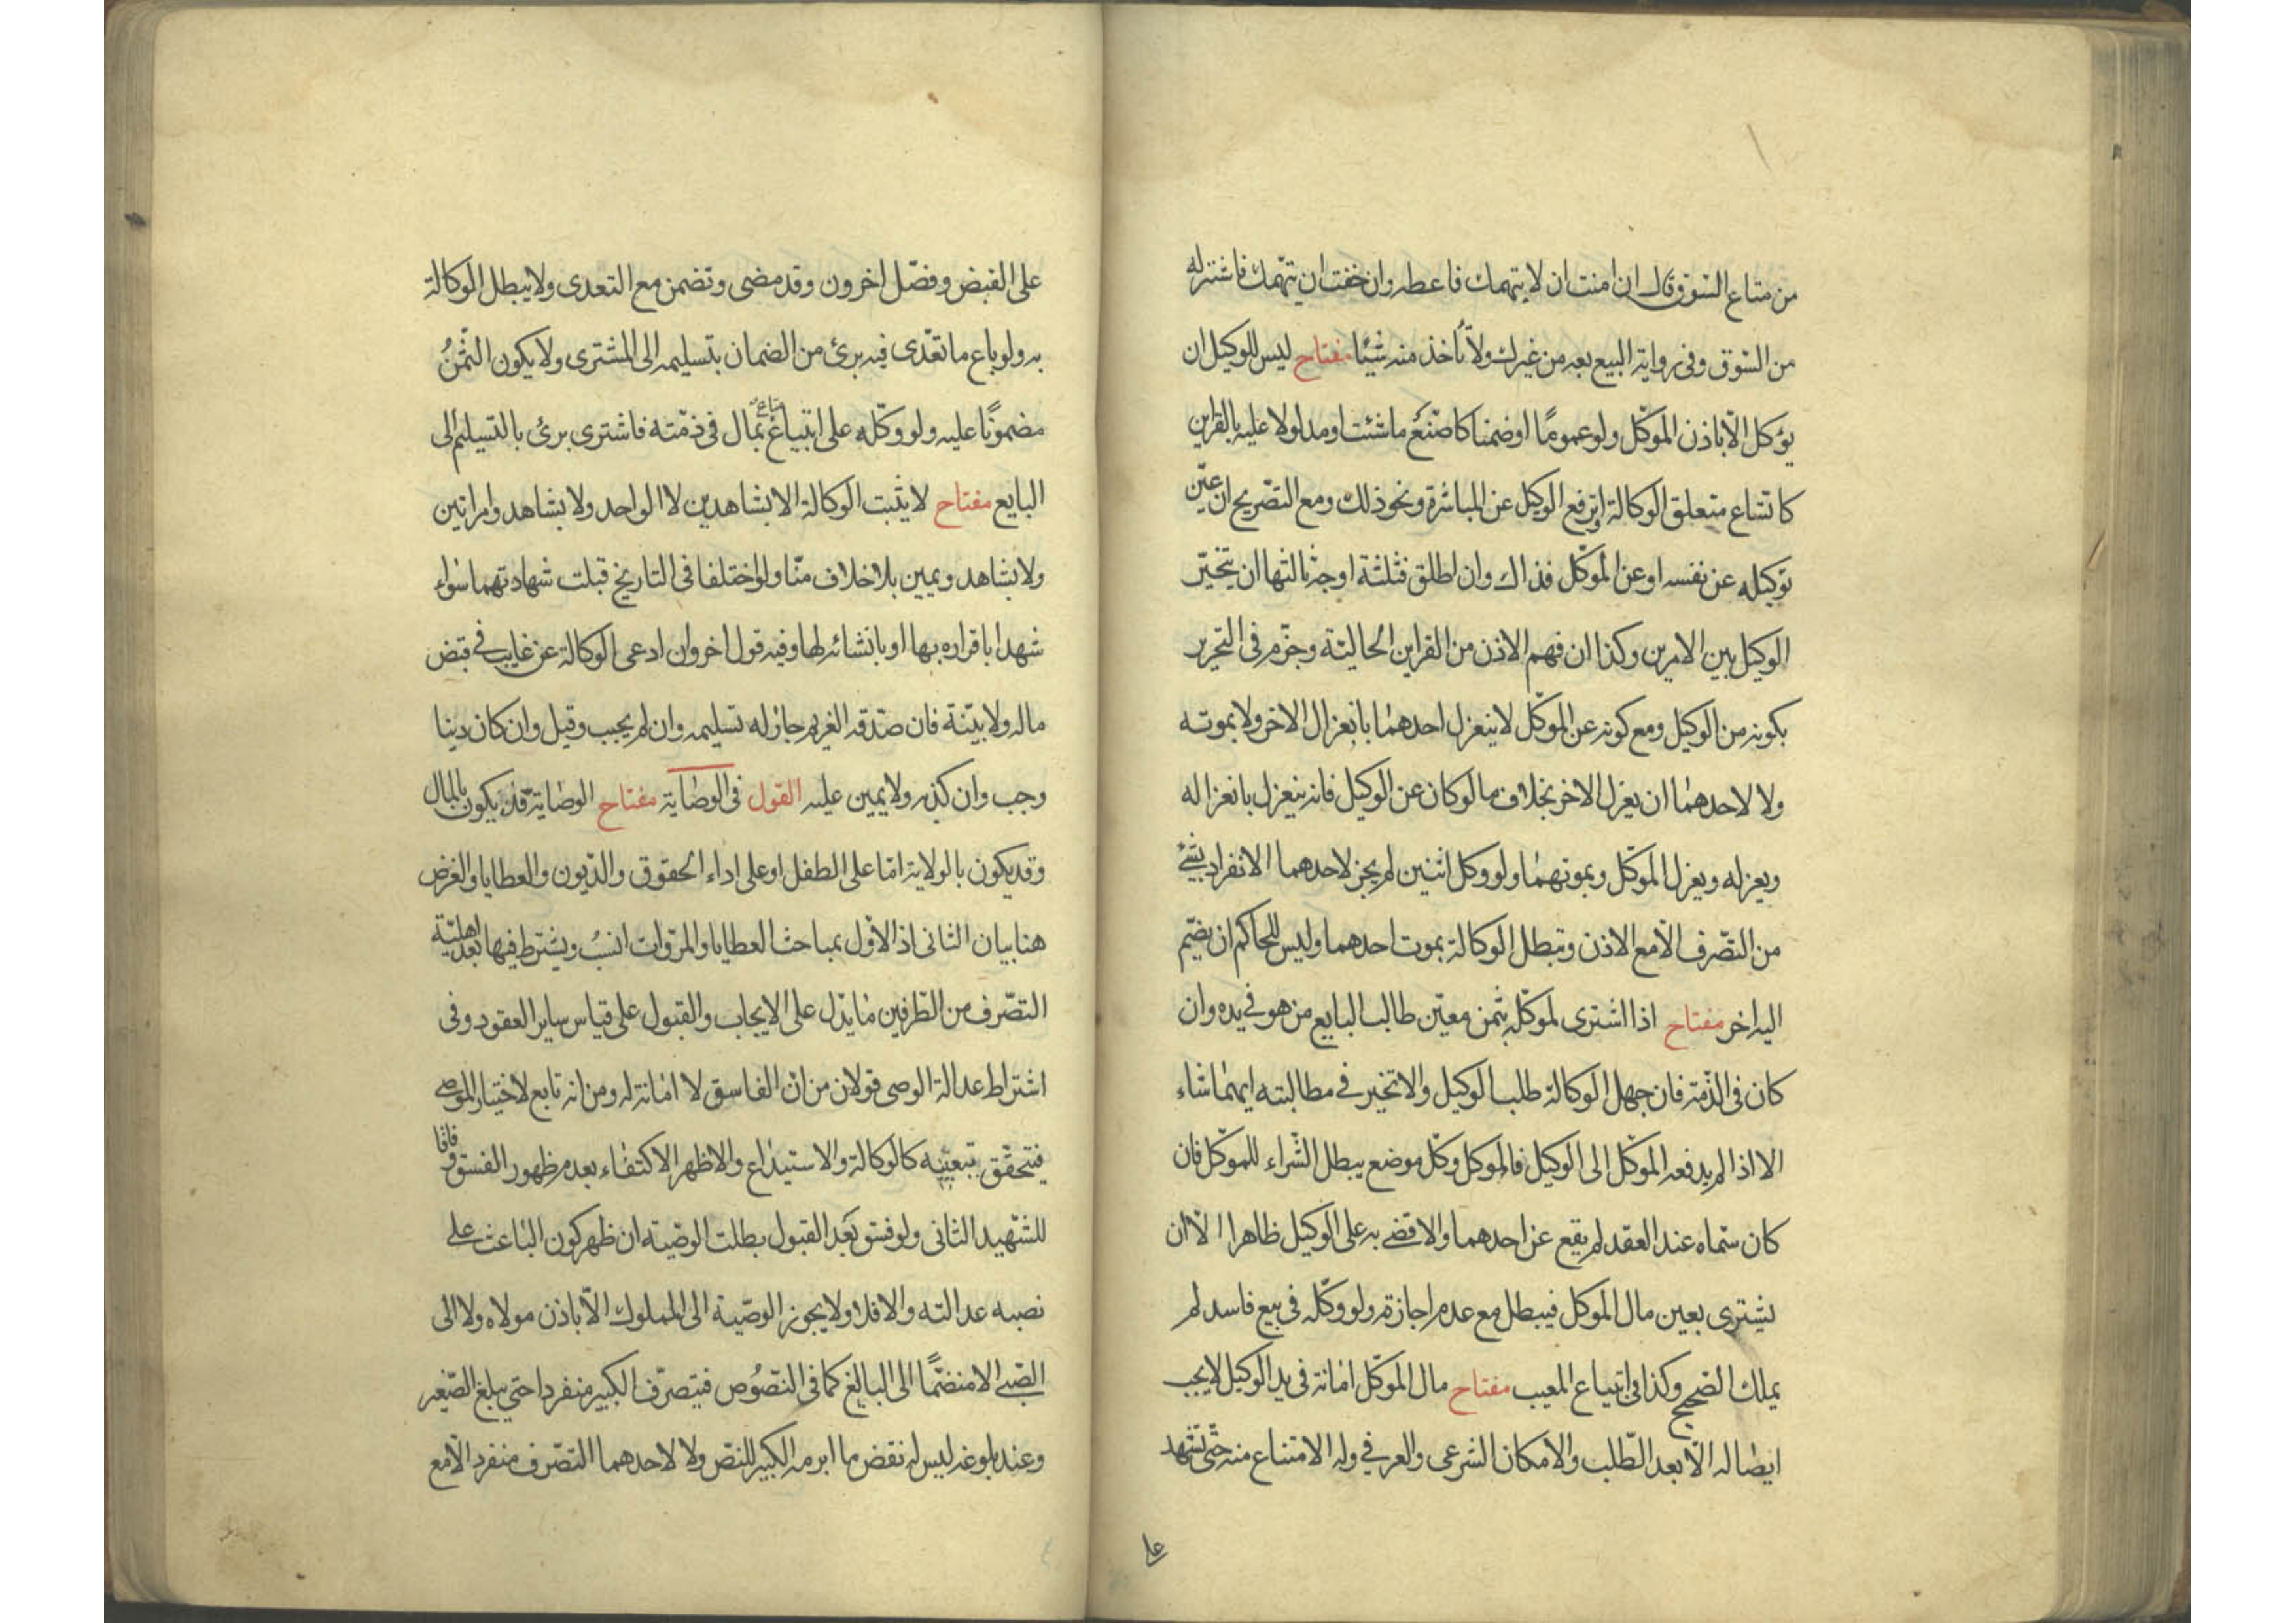 من متاع السّوق قال ان امنت ان لا يتهمك فاعطه وان خفت ان يتّهمك فاشتر له
من السّوق وفى رواية البيع بعه من غيرك ولا تأخذ منه شيئا مفتاح ليس للوكيل ان
يؤكل الّا باذن الموكّل ولو عموما او ضمنا كاصنع ما شئت او مدلولا عليه بالقراين
كاتساع متعلق الوكالة او ترفع الوكيل عن المباشرة ونحو ذلك ومع التصّريح ان عيّن
توكيله عن نفسه او عن الموكّل فذاك وان اطلق فثلثة اوجه ثالثها ان يتخيّر
الوكيل بين الامرين وكذا ان فهم الاذن من القراين الحاليّة وجزم فى التحرير
بكونه من الوكيل ومع كونه عن الموكّل لا ينعزل احدهما بانعزال الاخر ولا بموته
ولا لاحدهما ان يعزل الاخر بخلاف ما لو كان عن الوكيل فانه ينعزل بانعزاله
وبعزله وبعزل الموكّل وبموتهما ولو وكل اثنين لم يجز لاحدهما الانفراد بشئ
من التصّرف الّا مع الاذن وتبطل الوكالة بموت احدهما وليس للحاكم ان يضّم
اليه اخر مفتاح اذا اشترى لموكّله بثمن معيّن طالب البايع من هو فى يده وان
كان فى الذّمة فان جهل الوكالة طلب الوكيل والا تخير فى مطالبته ايهما شاء
الا اذا لم يدفعه الموكّل الى الوكيل فالموكل وكلّ موضع يبطل الشّراء للموكّل فان
كان سّماه عند العقد لم يقع عن احدهما والا قضى به على الوكيل ظاهرا الّا ان
يشترى بعين مال الموكل فيبطل مع عدم اجازته ولو وكّله فى بيع فاسد لم
يملك الصّحيح وكذا فى ابتياع المعيب مفتاح مال الموكّل امانة فى يد الوكيل لا يجب
ايصاله الّا بعد الطّلب والامكان الشرعى والعرفى وله الامتناع منه حتّى تشهد
على
على القبض وفصّل اخرون وقد مضى وتضمن مع التعدى ولا يبطل الوكالة
به ولو باع ما تعّدى فيه برئ من الضمان بتسليمه الى المشترى ولا يكون الثّمن
مضمونًا عليه ولو وكّله على ابتياع متاع بمال فى ذمّته فاشترى برئ بالتسليم الى
البايع مفتاح لا يثبت الوكالة الا بشاهدين لا الواحد ولا بشاهد وامراتين
ولا بشاهد ويمين بلا خلاف منّا ولو اختلفا فى التاريخ قبلت شهادتهما سواء
شهدا باقراره بها او بانشائه لها وفيه قول اخر وان ادعى الوكالة عن غايب فى قبض
ماله ولا بيّنة فان صدّقه الغريم جاز له تسليمه وان لم يجب وقيل وان كان دينا
وجب وان كذبه ولا يمين عليه القول فى الوصاية مفتاح الوصاية قد يكون بالمال
وقد يكون بالولاية امّا على الطفل او على اداء الحقوق والدّيون والعطايا والغرض
هنا بيان الثانى اذ الاوّل بمباحث العطايا والمروّات انسب ويشترط فيها بعد اهليّة
التصّرف من الطّرفين ما يدّل على الايجاب والقبول على قياس ساير العقود وفى
اشتراط عدالة الوصى قولان من انّ الفاسق لا امانة له ومن انه تابع لاختيار الموصى
فيتحقّق بتعيّنه كالوكالة والاستيداع والاظهر الاكتفاء بعدم ظهور الفسق وفاقا
للشّهيد الثانى ولو فسق بعد القبول بطلت الوصّية ان ظهر كون الباعث على
نصبه عدالته والا فلا ولا يجوز الوصّية الى المملوك الّا باذن مولاه ولا الى
الصّبى الا منضمًّا الى البالغ كما فى النّصُوص فيتصرّف الكبير منفردا حتى يبلغ الصّغير
وعند بلوغه ليس له نقض ما ابرمه الكبير للنصّ ولا لاحدهما التصّرف منفرد الّا مع